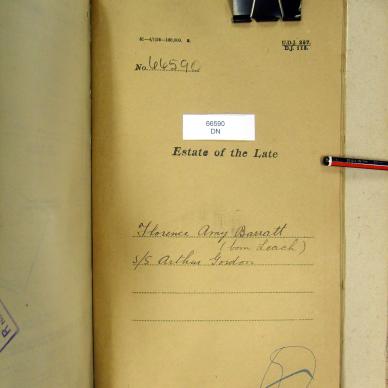 U.D.J. 257.
D.J. 118.
No. 66590
66590
DN
Estate of the Late
Florence Amy Barratt
(born Leach)
S/S Arthur Gordon
R